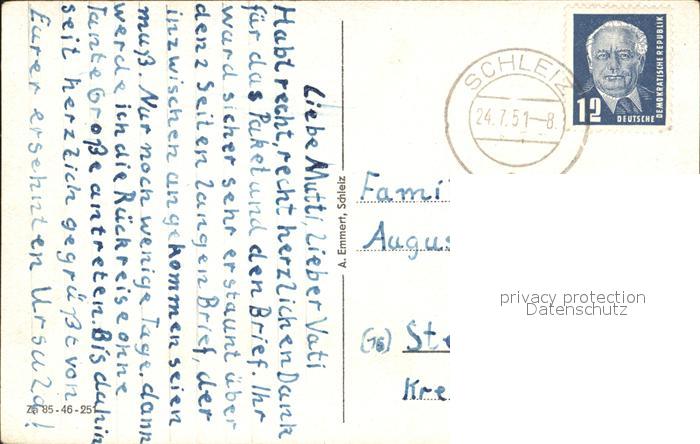 Liebe Mutti, lieber Vati
Habt recht, recht herzlichen Dank
für das Paket und den Brief. Ihr
ward sicher sehr erstaunt über
den 2 Seiten langen Brief, der
inzwischen angekommen sein
muß. Nur noch wenige Tage, dann
werde ich die Rückreise ohne
Tante Große antreten. Bis dahin
seit herzlich gegrüßt von
Eurer ersehnten Ursula!
Za 85-46-251
A. Emmert, Schleiz
SCHLEIZ
24.7.51-8.
12
DEUTSCHE
DEMOKRATISCHE REPUBLIK
Fami
Augus
(16) Ste
Kre
privacy protection
Datenschutz